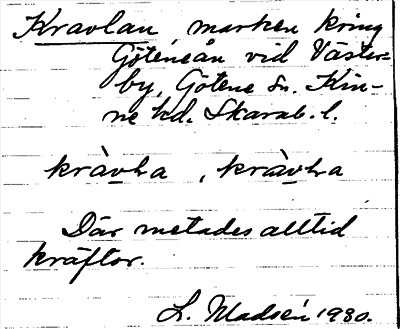 Kravlan, marken kring
Göteneån vid Väster-
by, Götene sn. Kin-
ne hd. Skarab. l.
kràvla, kràvla
Där metades alltid
kräftor.
L. Madsén 1930.